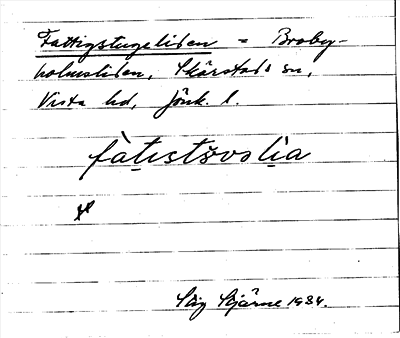 Fattigstugeliden = Broby-
holmsliden, Skärstads sn,
Vista hd, Jönk. l.
fàtıstƨvƨlia
Stig Stjärne 1934.